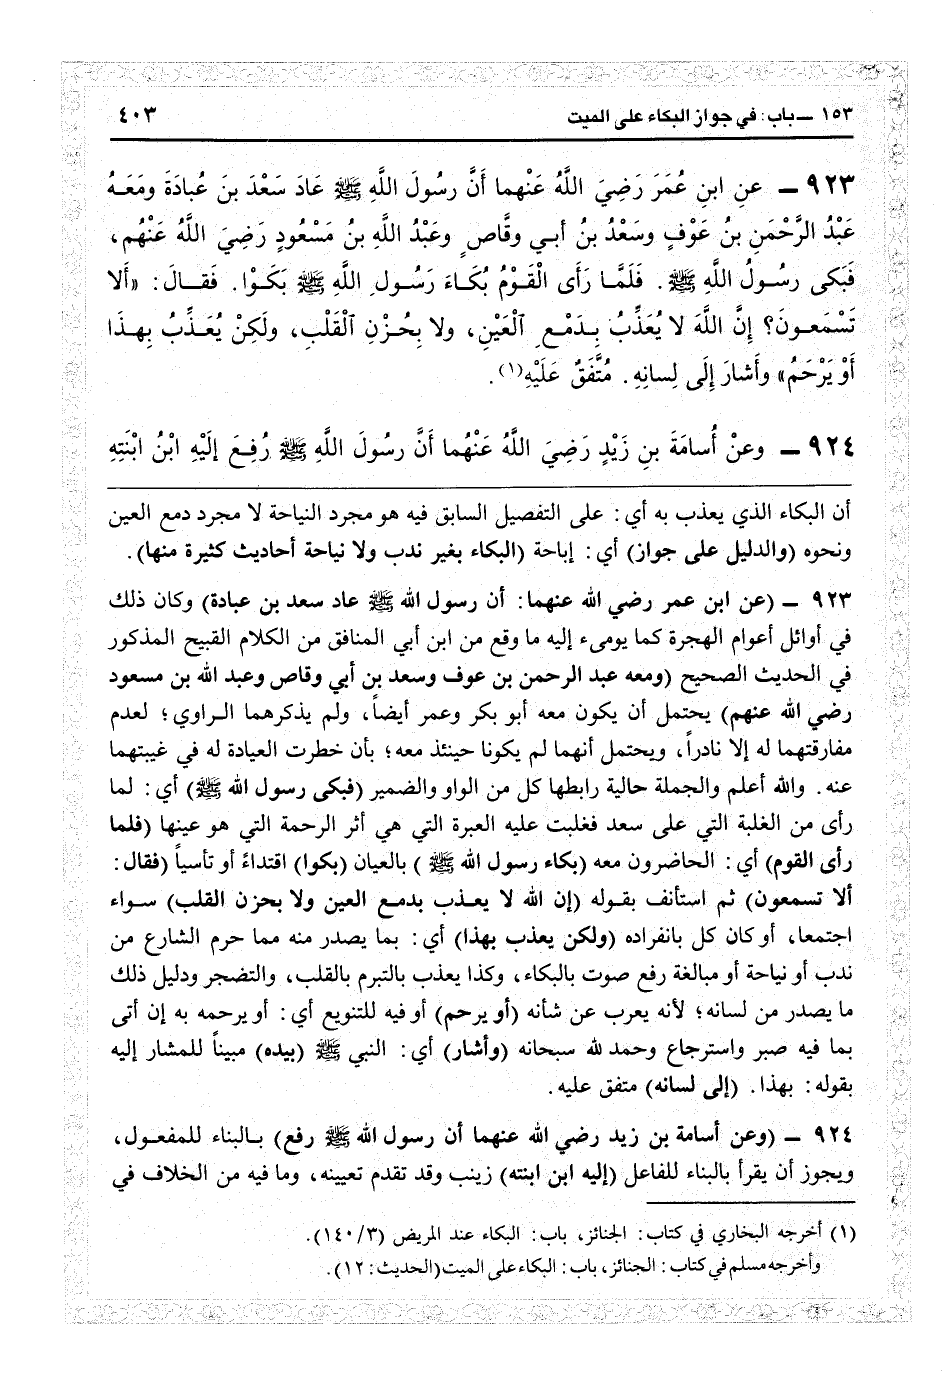 ١٥٣ ــ باب: في جواز البكاء على الميت ٤٠٣
٩٢٣ ـ عنِ ابنِ عُمَرَ رَضِيَ اللَّهُ عَنْهما أَنَّ رسُولَ اللَّهِ ﷺ عَادَ سَعْدَ بنَ عُبادَةَ ومَعَهُ
عَبْدُ الرَّحْمَنِ بنُ عَوْفٍ وسَعْدُ بنُ أبي وقَّاصٍ وعَبْدُ اللَّهِ بنُ مَسْعُودٍ رَضِيَ اللَّهُ عَنْهُم،
فَبَكى رسُولُ اللَّهِ ﷺ. فَلَمَّا رَأى الْقَوْمُ بُكَاءَ رَسُولِ اللَّهِ ﷺ بَكَوْا. فَقالَ: «أَلا
تَسْمَعونَ؟ إِنَّ اللَّهَ لا يُعَذِّبُ بِدَمْعِ الْعَيْنِ، ولا بِحُزْنِ الْقَلْبِ، ولَكِنْ يُعَذِّبُ بِهذَا
أَوْ يَرْحَمُ» وأَشارَ إِلَى لِسانِهِ. مُتَّفَقٌ عَلَيْهِ(١).
٩٢٤ ـ وعنْ أُسامَةَ بنِ زَيْدٍ رَضِيَ اللَّهُ عَنْهُما أَنَّ رسُولَ اللَّهِ ﷺ رُفِعَ إِلَيْهِ ابْنُ ابْنَتِهِ
أن البكاء الذي يعذب به أي: على التفصيل السابق فيه هو مجرد النياحة لا مجرد دمع العين
ونحوه (والدليل على جواز) أي: إباحة (البكاء بغير ندب ولا نياحة أحاديث كثيرة منها).
٩٢٣ ـ (عن ابن عمر رضي الله عنهما: أن رسول الله ﷺ عاد سعد بن عبادة) وكان ذلك
في أوائل أعوام الهجرة كما يومىء إليه ما وقع من ابن أبي المنافق من الكلام القبيح المذكور
في الحديث الصحيح (ومعه عبد الرحمن بن عوف وسعد بن أبي وقاص وعبد الله بن مسعود
رضي الله عنهم) يحتمل أن يكون معه أبو بكر وعمر أيضاً، ولم يذكرهما الراوي؛ لعدم
مفارقتهما له إلا نادراً، ويحتمل أنهما لم يكونا حينئذ معه؛ بأن خطرت العيادة له في غيبتهما
عنه. والله أعلم والجملة حالية رابطها كل من الواو والضمير (فبكى رسول الله ﷺ) أي: لما
رأى من الغلبة التي على سعد فغلبت عليه العبرة التي هي أثر الرحمة التي هو عينها (فلما
رأى القوم) أي: الحاضرون معه (بكاء رسول الله ﷺ) بالعيان (بكوا) اقتداءً أو تأسياً (فقال:
ألا تسمعون) ثم استأنف بقوله (إن الله لا يعذب بدمع العين ولا بحزن القلب) سواء
اجتمعا، أو كان كل بانفراده (ولكن يعذب بهذا) أي: بما يصدر منه مما حرم الشارع من
ندب أو نياحة أو مبالغة رفع صوت بالبكاء، وكذا يعذب بالتبرم بالقلب، والتضجر ودليل ذلك
ما يصدر من لسانه؛ لأنه يعرب عن شأنه (أو يرحم) أو فيه للتنويع أي: أو يرحمه به إن أتى
بما فيه صبر واسترجاع وحمد لله سبحانه (وأشار) أي: النبي ﷺ (بيده) مبيناً للمشار إليه
بقوله: بهذا. (إلى لسانه) متفق عليه.
٩٢٤ ـ (وعن أسامة بن زيد رضي الله عنهما أن رسول الله ﷺ رفع) بالبناء للمفعول،
ويجوز أن يقرأ بالبناء للفاعل (إليه ابن ابنته) زينب وقد تقدم تعيينه، وما فيه من الخلاف في
(١) أخرجه البخاري في كتاب: الجنائز، باب: البكاء عند المريض (١٤٠/٣).
وأخرجه مسلم في كتاب: الجنائز، باب: البكاء على الميت (الحديث: ١٢).